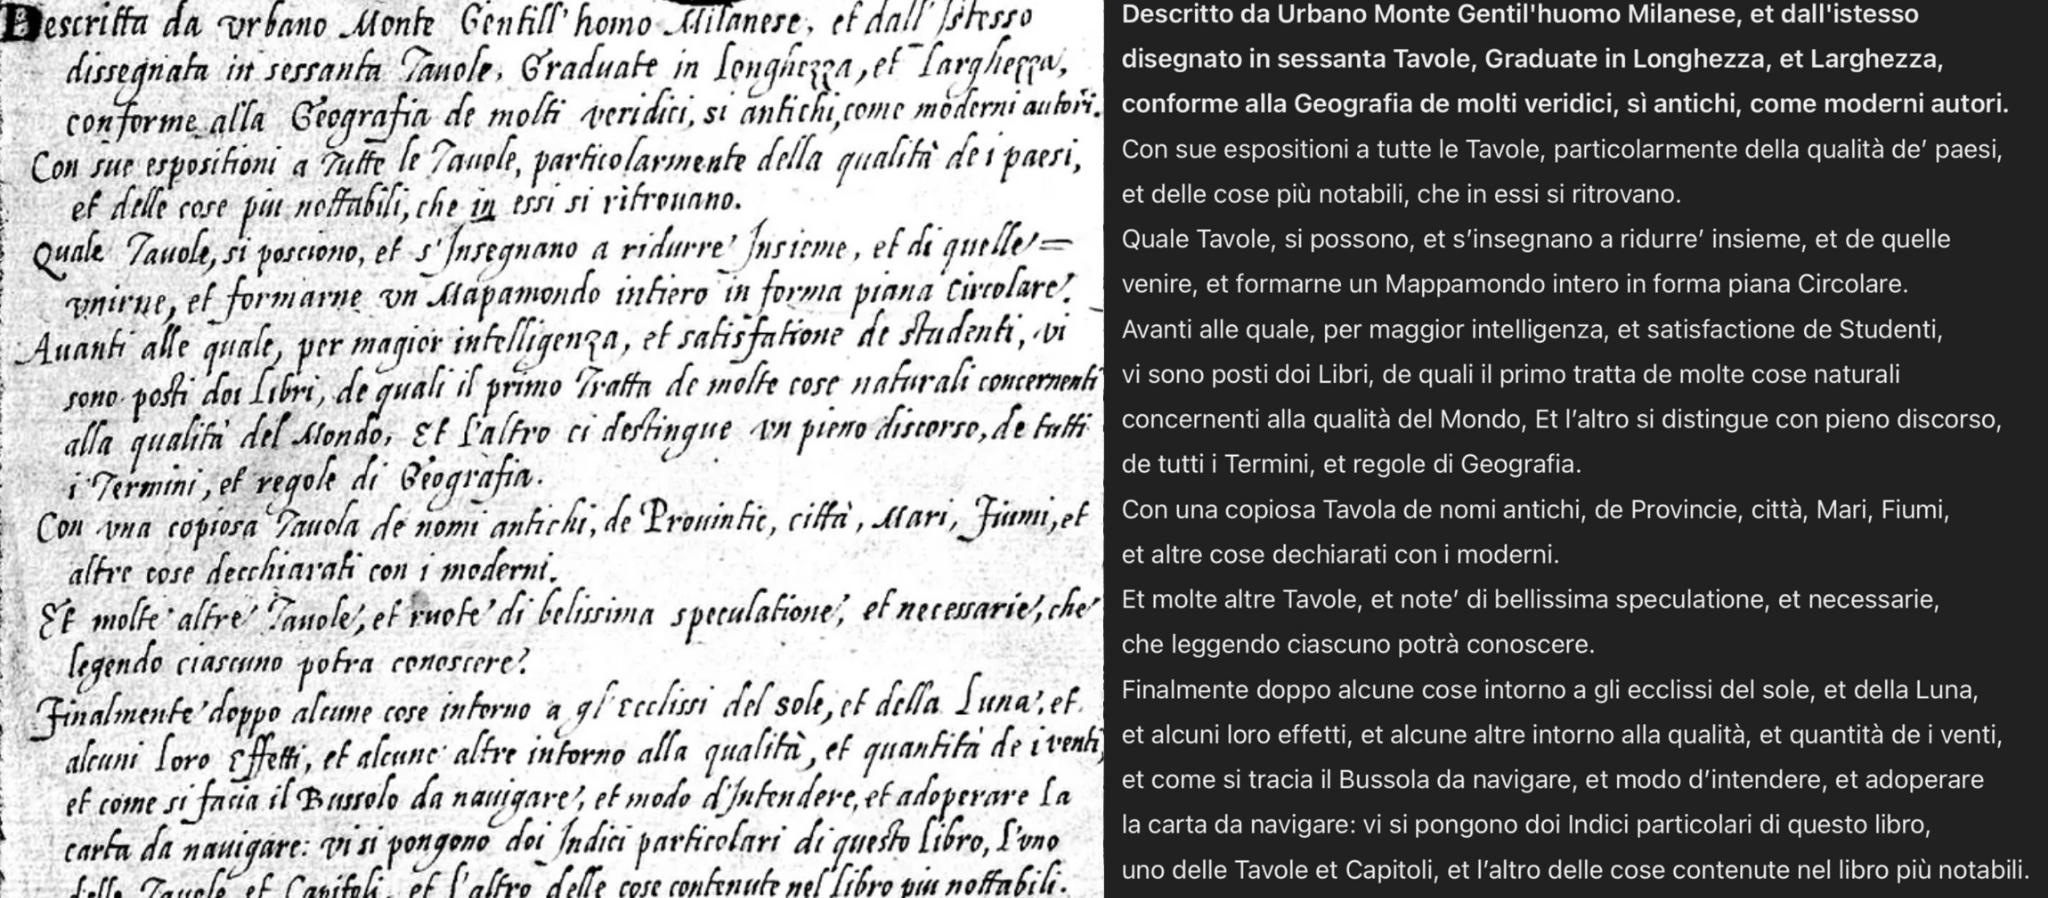 Descritta da Urbano Monte Gentill'homo Milanese, et dall'Istesso
dissegnata in sessanta Tauole, Graduate in Longhezza, et Larghezza,
conforme alla Geografia de molti veridici, si antichi, come moderni autori.
Con sue espositioni a Tutte le Tauole, particolarmente della qualità de i paesi,
et delle cose piu nottabili, che in essi si ritrouano.
Quale Tauole, si posciono, et s'Insegnano a ridurre Insieme, et di quelle=
vnirne, et formarne vn Mapamondo intiero in forma piana Circolare.
Auanti alle quale, per magior intelligenza, et satisfatione de studenti, vi
sono posti doi Libri, de quali il primo Tratta de molte cose naturali concernenti
alla qualità del Mondo, Et l'altro ci destingue vn pieno discorso, de tutti
i Termini, et regole di Geografia.
Con vna copiosa Tauola de nomi antichi, de Prouintie, città, Mari, Fiumi, et
altre cose decchiarati con i moderni.
Et molte altre Tauole, et ruote di belissima speculatione, et necessarie, che
legendo ciascuno potra conoscere.
Finalmente doppo alcune cose intorno a gl'Ecclissi del sole, et della Luna, et
alcuni loro Effetti, et alcune altre intorno alla qualità, et quantità de i venti,
et come si facia il Bussolo da nauigare, et modo d'Intendere, et adoperare la
carta da nauigare: vi si pongono doi Indici particolari di questo libro, l'vno
delle Tauole et Capitoli, et l'altro delle cose contenute nel libro piu nottabili.
Descritto da Urbano Monte Gentil'huomo Milanese, et dall'istesso
disegnato in sessanta Tavole, Graduate in Longhezza, et Larghezza,
conforme alla Geografia de molti veridici, sì antichi, come moderni autori.
Con sue espositioni a tutte le Tavole, particolarmente della qualità de’ paesi,
et delle cose più notabili, che in essi si ritrovano.
Quale Tavole, si possono, et s’insegnano a ridurre’ insieme, et de quelle
venire, et formarne un Mappamondo intero in forma piana Circolare.
Avanti alle quale, per maggior intelligenza, et satisfactione de Studenti,
vi sono posti doi Libri, de quali il primo tratta de molte cose naturali
concernenti alla qualità del Mondo, Et l’altro si distingue con pieno discorso,
de tutti i Termini, et regole di Geografia.
Con una copiosa Tavola de nomi antichi, de Provincie, città, Mari, Fiumi,
et altre cose dechiarati con i moderni.
Et molte altre Tavole, et note’ di bellissima speculatione, et necessarie,
che leggendo ciascuno potrà conoscere.
Finalmente doppo alcune cose intorno a gli ecclissi del sole, et della Luna,
et alcuni loro effetti, et alcune altre intorno alla qualità, et quantità de i venti,
et come si tracia il Bussola da navigare, et modo d’intendere, et adoperare
la carta da navigare: vi si pongono doi Indici particolari di questo libro,
uno delle Tavole et Capitoli, et l’altro delle cose contenute nel libro più notabili.